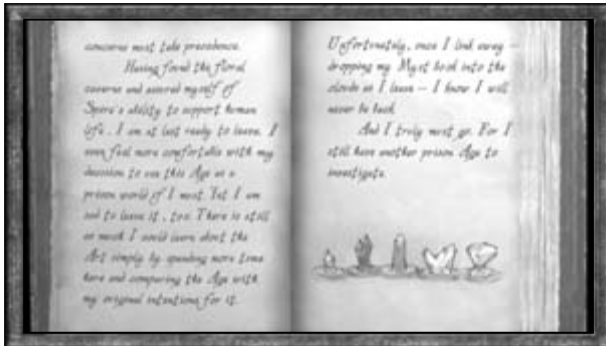 concerns must take precedence.
Having found the floral
caverns and assured myself of
Spire's ability to support human
life, I am at last ready to leave. I
even feel more comfortable with my
decision to use this Age as a
prison world if I must. Yet I am
sad to leave it, too. There is still
so much I could learn about the
Art simply by spending more time
here and comparing the Age with
my original intentions for it.
Unfortunately, once I link away –
dropping my Myst book into the
clouds as I leave – I know I will
never be back.
And I truly must go. For I
still have another prison Age to
investigate.